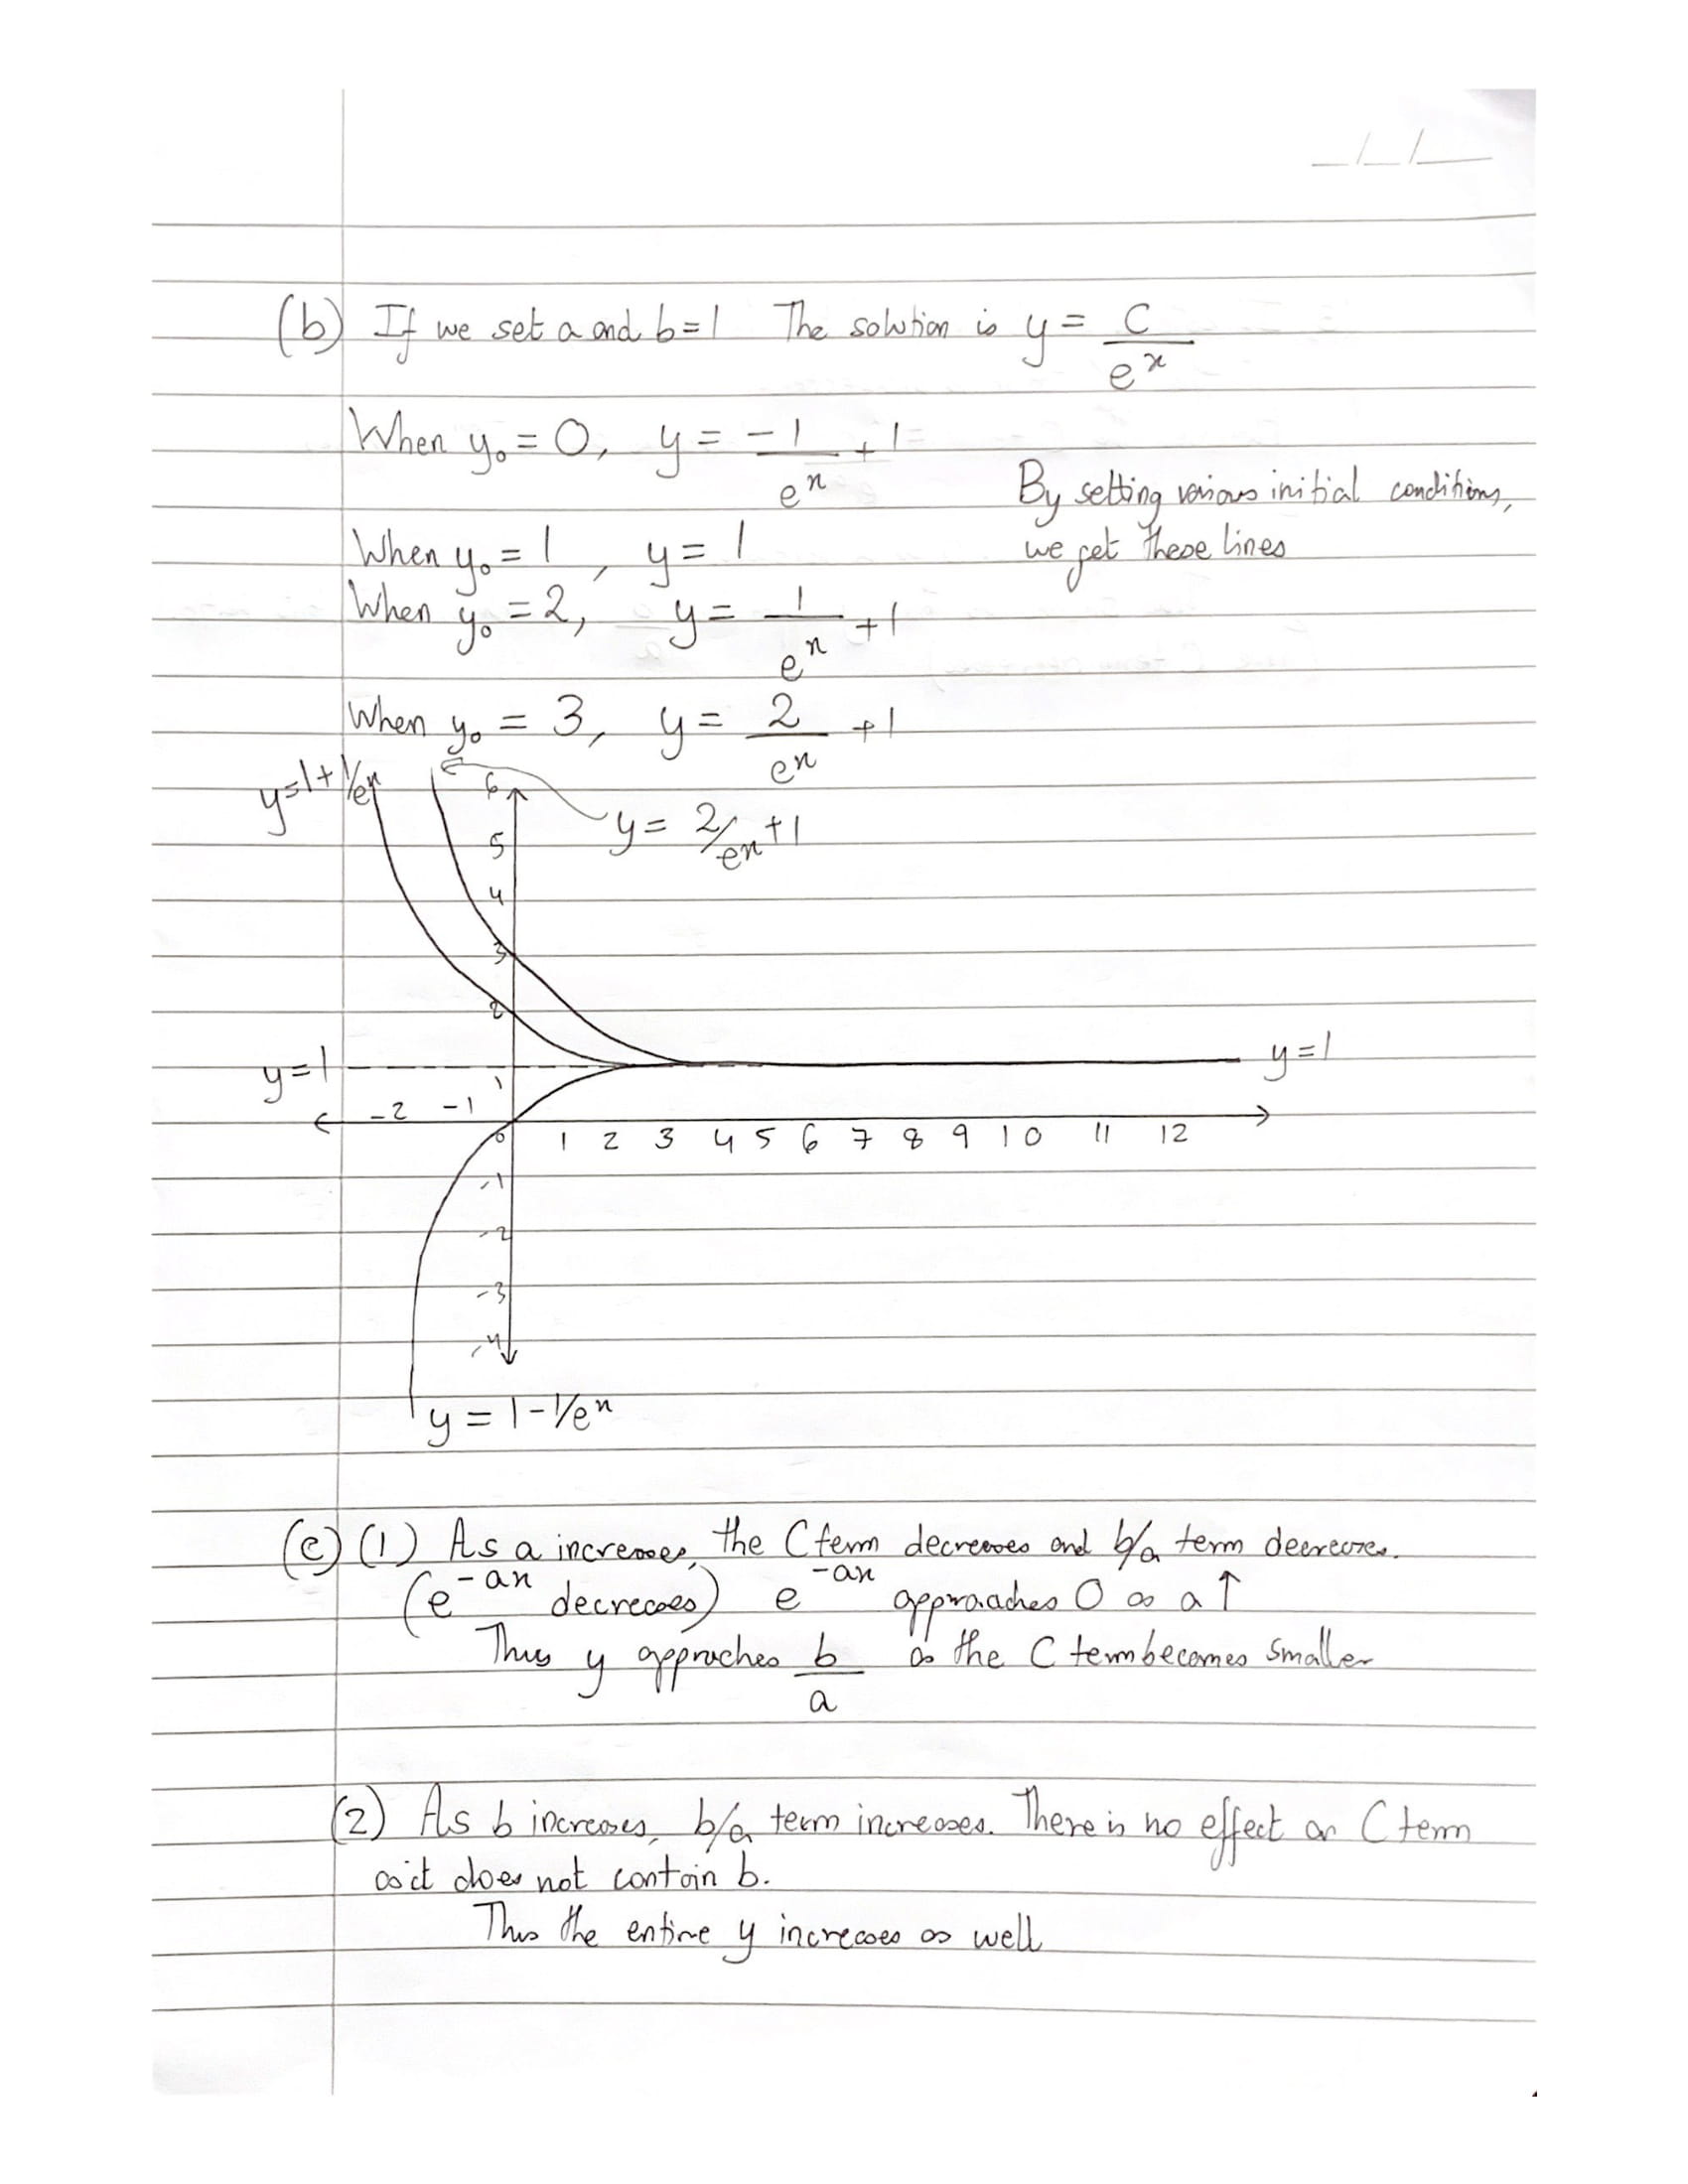 (b) If we set a and b=1 The solution is y = C/e^x
When y₀ = 0, y = -1/e^x + 1
By setting various initial conditions,
we get these lines
When y₀ = 1, y = 1
When y₀ = 2, y = 1/e^x + 1
When y₀ = 3, y = 2/e^x + 1
y=1+1/e^x
y = 2/e^x + 1
6
5
4
3
2
y=1
y=1
1
-2 -1
0 1 2 3 4 5 6 7 8 9 10 11 12
-1
-2
-3
-4
y = 1-1/e^x
(c) (1) As a increases, the C term decreases and b/a term decreases.
(e^-ax decreases) e^-ax approaches 0 as a ↑
Thus y approches b/a as the C term becomes smaller
(2) As b increases, b/a term increases. There is no effect on C term
as it does not contain b.
Thus the entire y increases as well